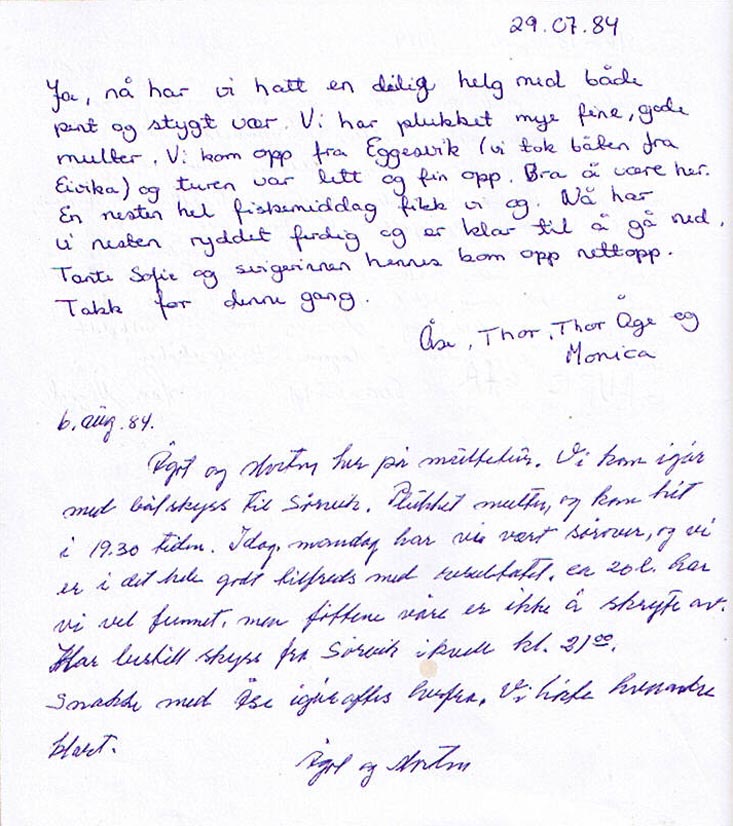 29.07.84
Ja, nå har vi hatt en deilig helg med både
pent og stygt vær. Vi har plukket mye fine, gode
multer. Vi kom opp fra Eggesvik (vi tok båten fra
Eivika) og turen var lett og fin opp. Bra å være her.
En nesten hel fiskemiddag fikk vi og. Nå har
vi nesten ryddet ferdig og er klar til å gå ned.
Tante Sofie og svigerinnen hennes kom opp nettopp.
Takk for denne gang.
Åse, Thor, Thor Åge og
Monica
6. aug. 84.
Ågot og her på multetur. Vi kom igår
med båtskyss til Sørvik. Plukket multer, og kom hit
i 19.30 tiden. Idag, mandag har vi vært sørover, og vi
er i det hele godt tilfreds med resultatet, ca 20 l. har
vi vel funnet, men føttene våre er ikke å skryte av.
Har bestilt skyss fra Sørvik ikveld kl. 21⁰⁰.
Snakke med Åse igår aftes herfra. Vi hørte hverandre
klart.
Ågot og